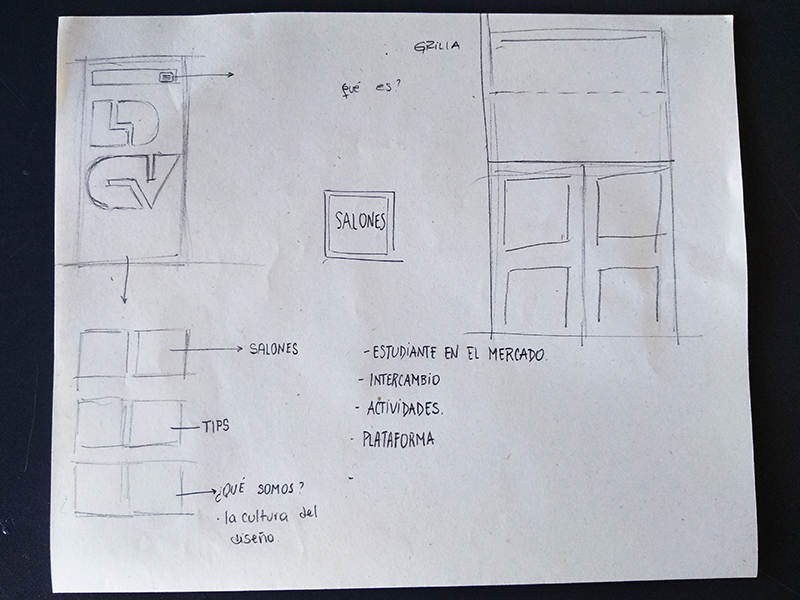 GRILLA
qué es?
LD
CV
SALONES
SALONES
TIPS
¿QUÉ SOMOS?
· la cultura del
diseño.
- ESTUDIANTE EN EL MERCADO.
- INTERCAMBIO
- ACTIVIDADES.
- PLATAFORMA
-